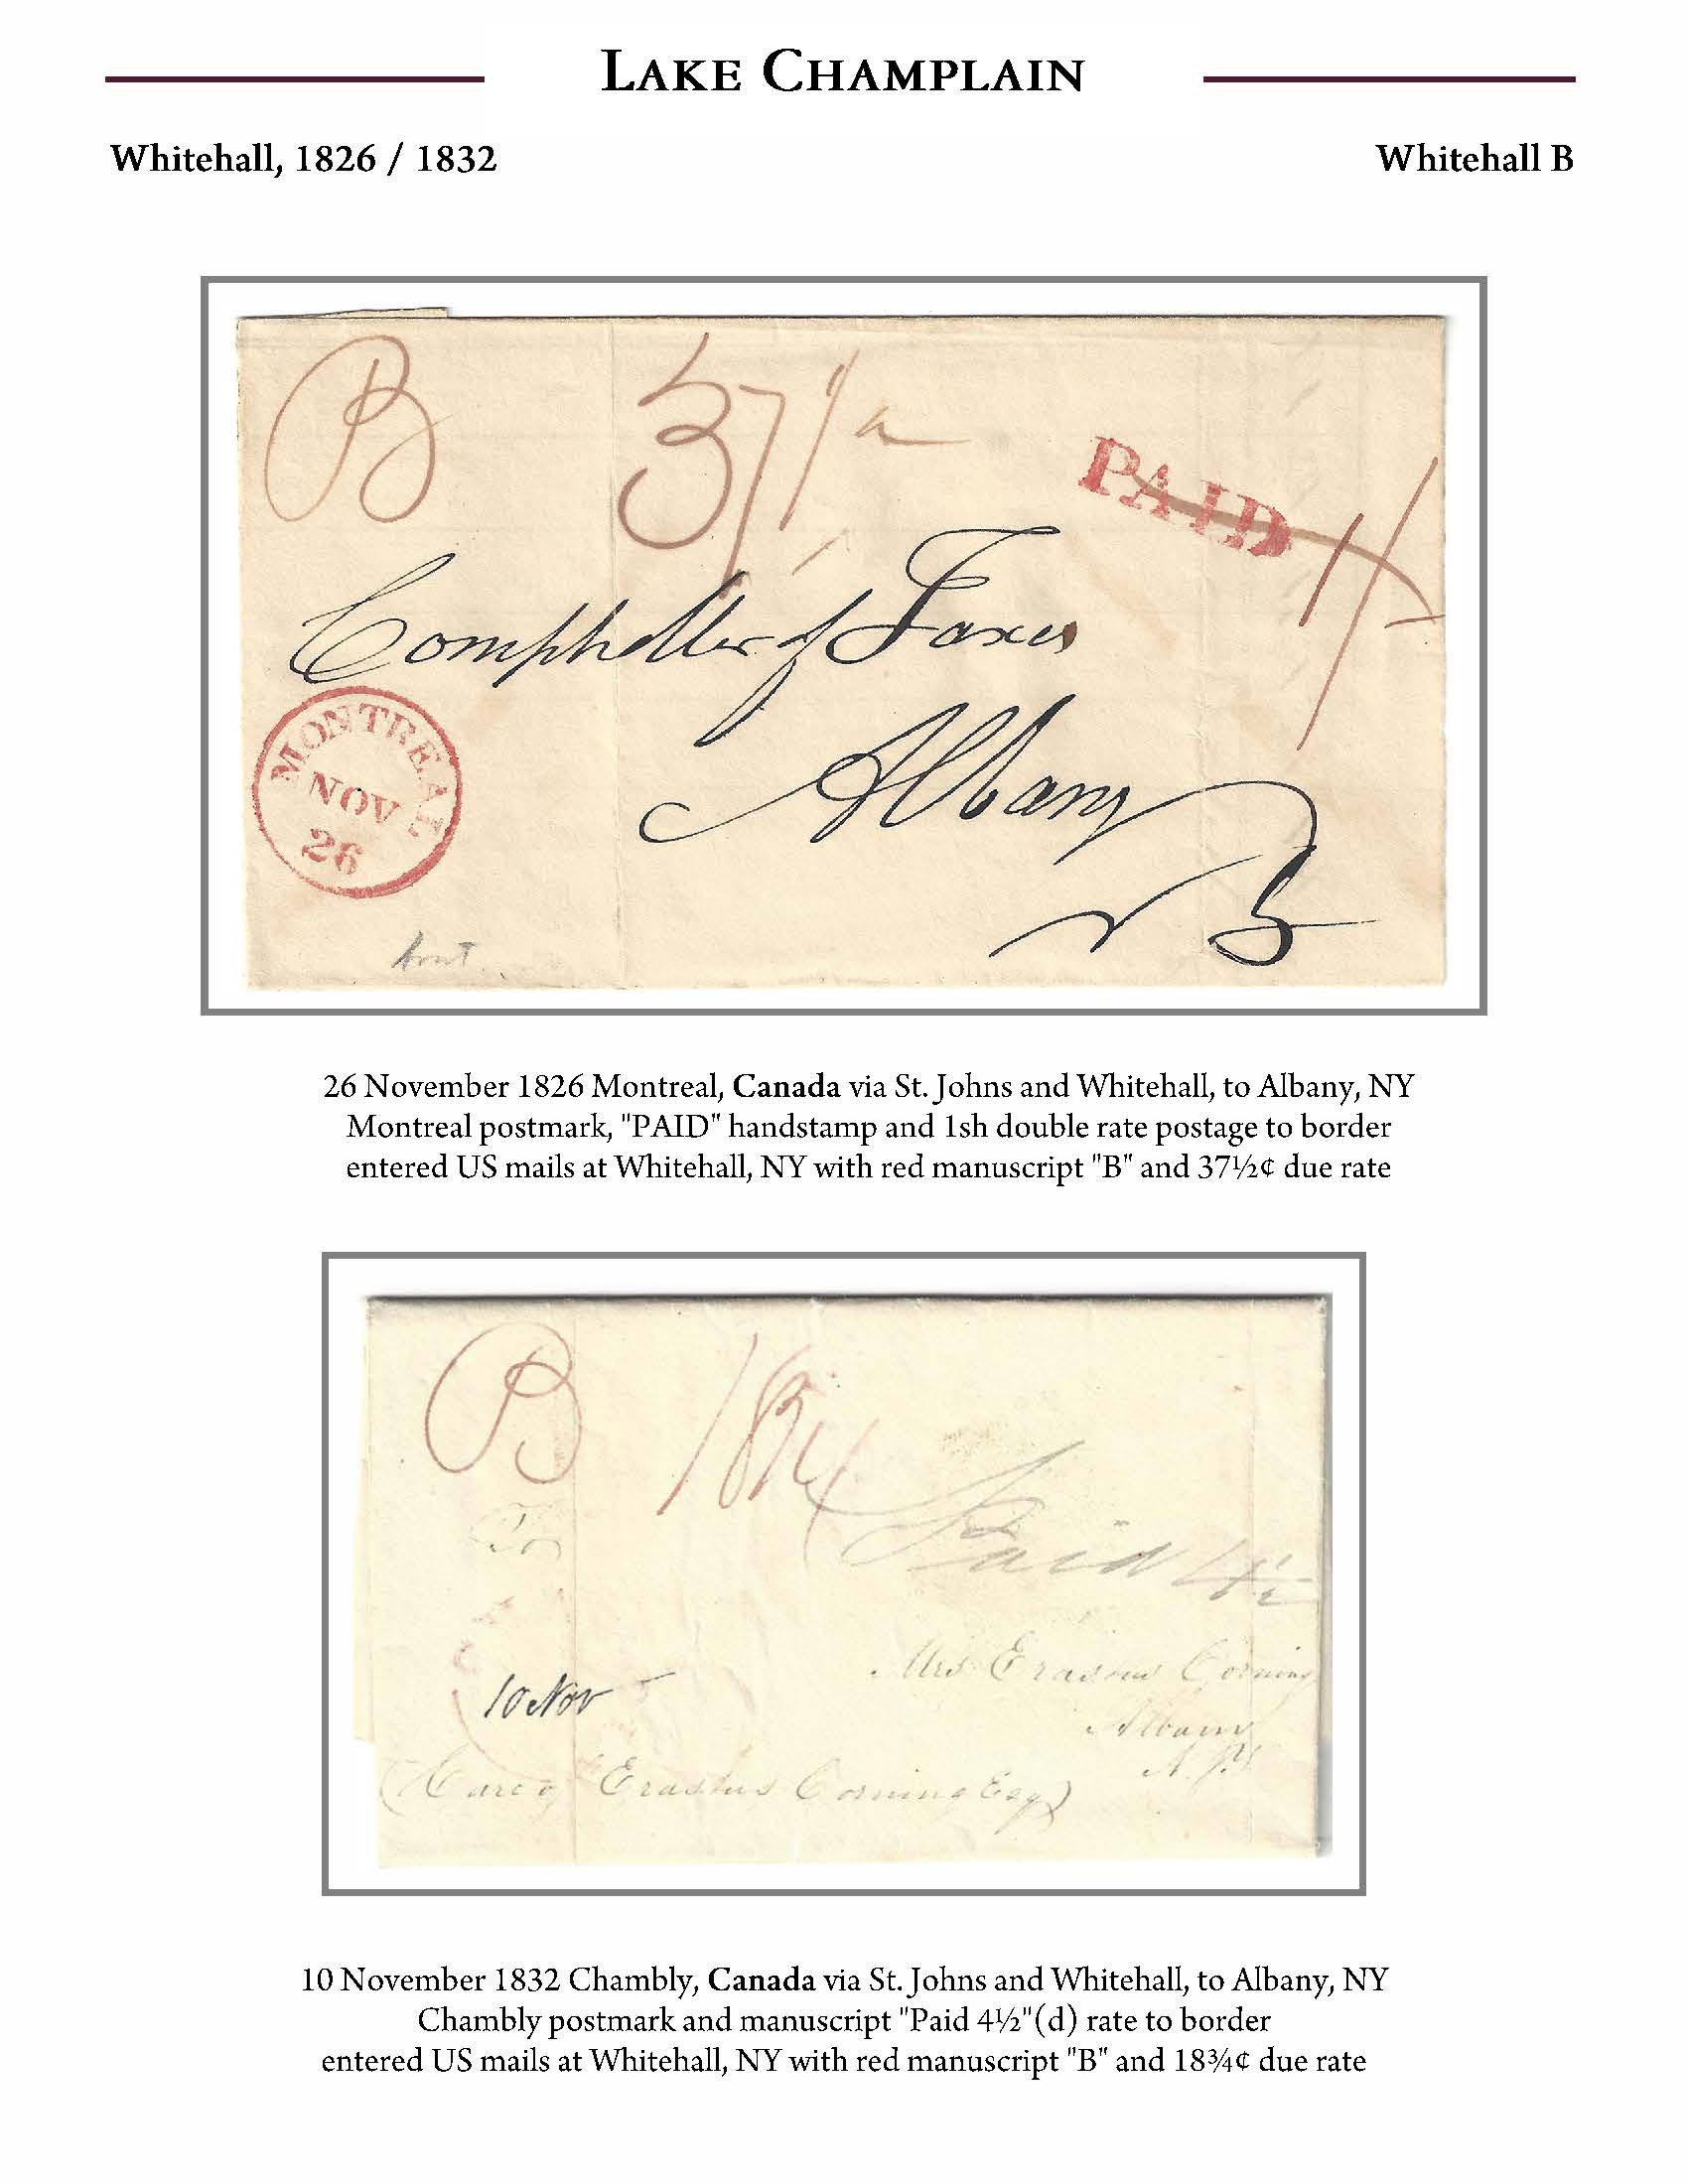 LAKE CHAMPLAIN
Whitehall, 1826 / 1832
Whitehall B
B
37 1/2
PAID
1/-
Comptroller of Taxes
MONTREAL
NOV
26
Albany
26 November 1826 Montreal, Canada via St. Johns and Whitehall, to Albany, NY
Montreal postmark, "PAID" handstamp and 1sh double rate postage to border
entered US mails at Whitehall, NY with red manuscript "B" and 37½¢ due rate
B
18¾
Paid 4½
Mrs Erastus Corning
10 Nov
Albany
N.Y.
(Care of Erastus Corning Esq)
10 November 1832 Chambly, Canada via St. Johns and Whitehall, to Albany, NY
Chambly postmark and manuscript "Paid 4½"(d) rate to border
entered US mails at Whitehall, NY with red manuscript "B" and 18¾¢ due rate